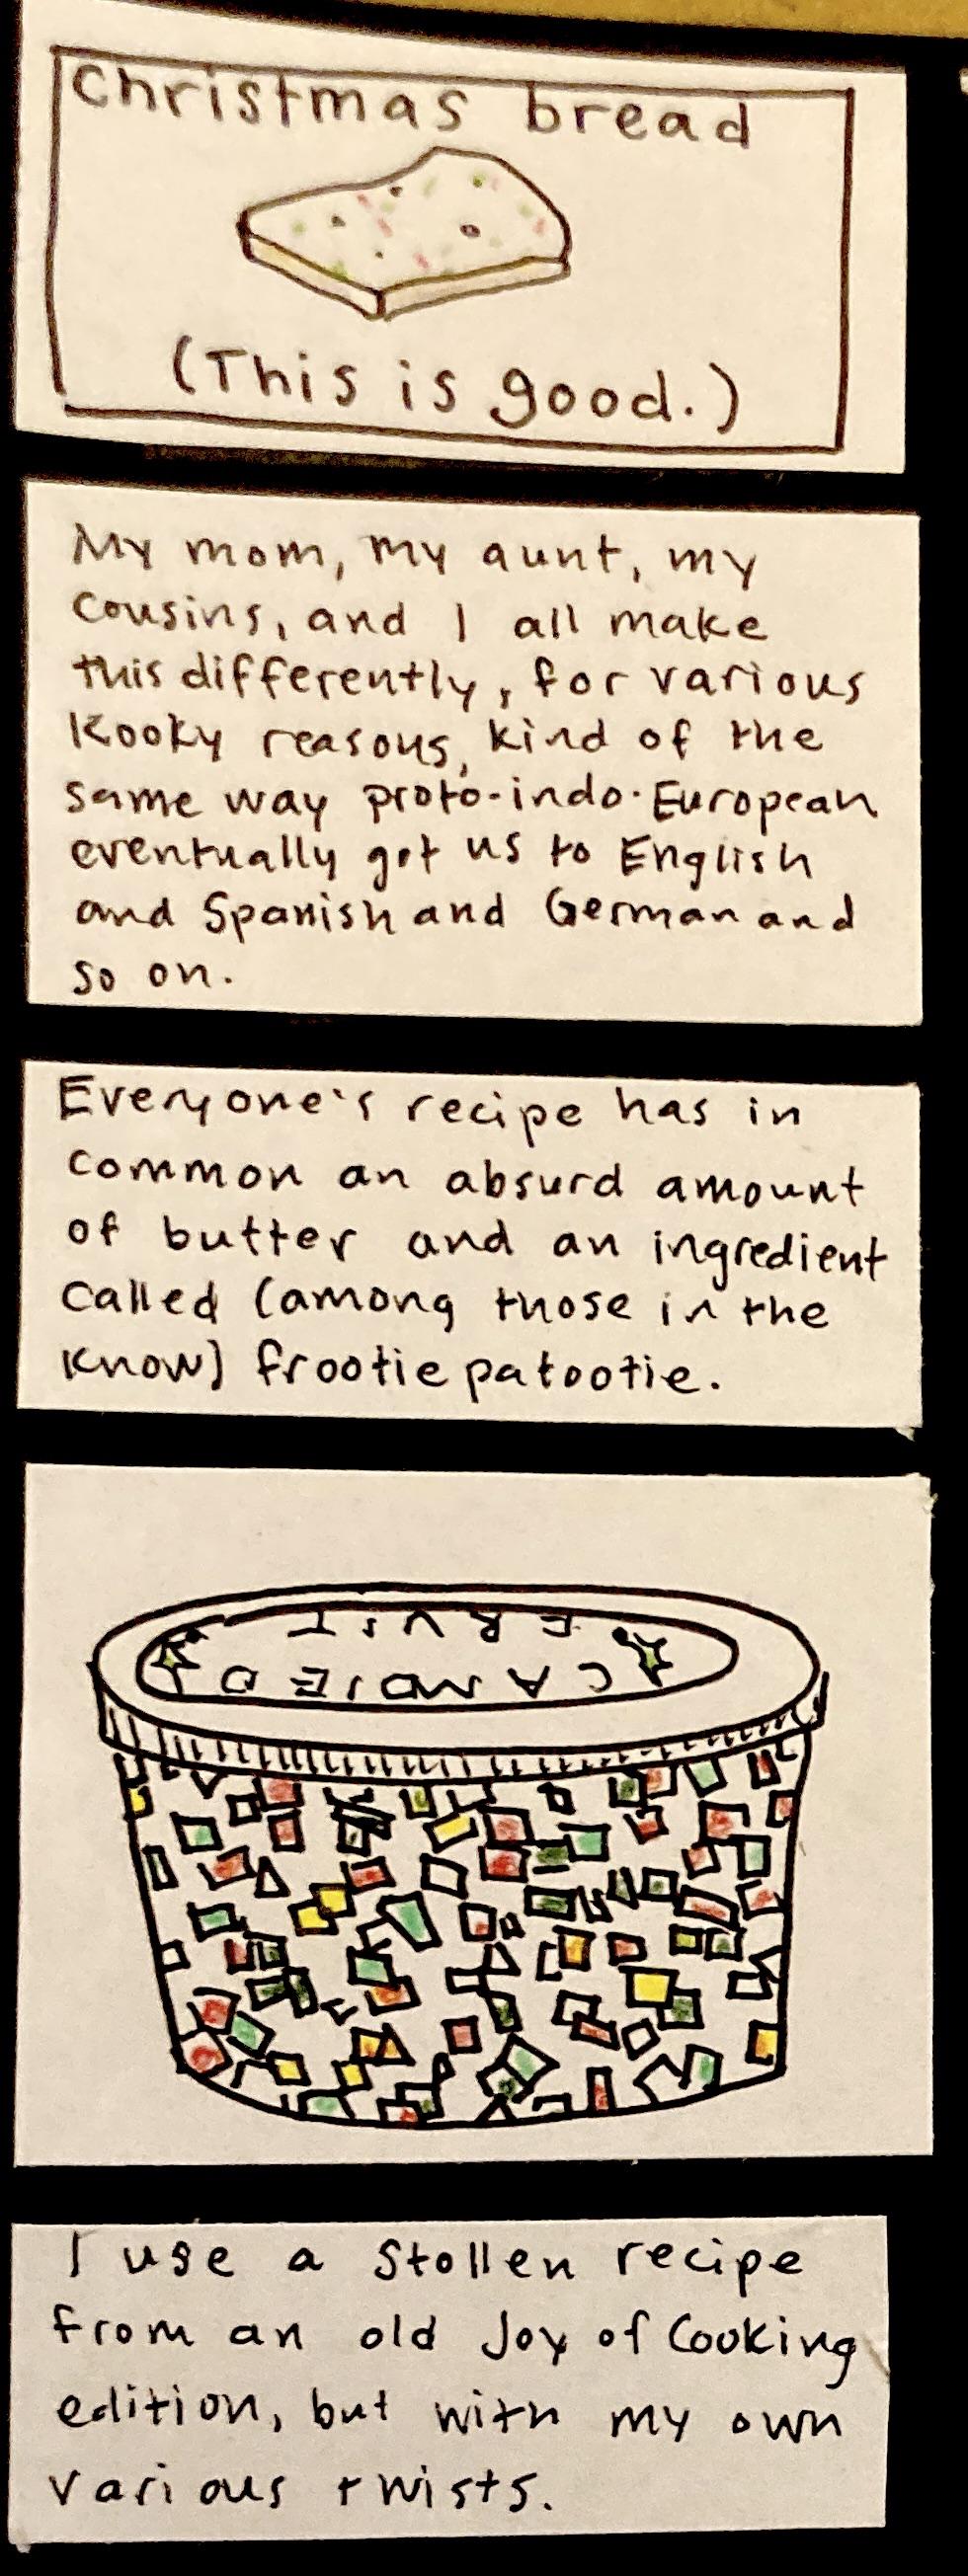 Christmas bread
(This is good.)
My mom, my aunt, my
cousins, and I all make
this differently, for various
kooky reasons, kind of the
same way proto-indo-European
eventually got us to English
and Spanish and German and
so on.
Everyone's recipe has in
common an absurd amount
of butter and an ingredient
called (among those in the
know) frootie patootie.
CANDIED
FRUIT
I use a stollen recipe
from an old Joy of Cooking
edition, but with my own
various twists.